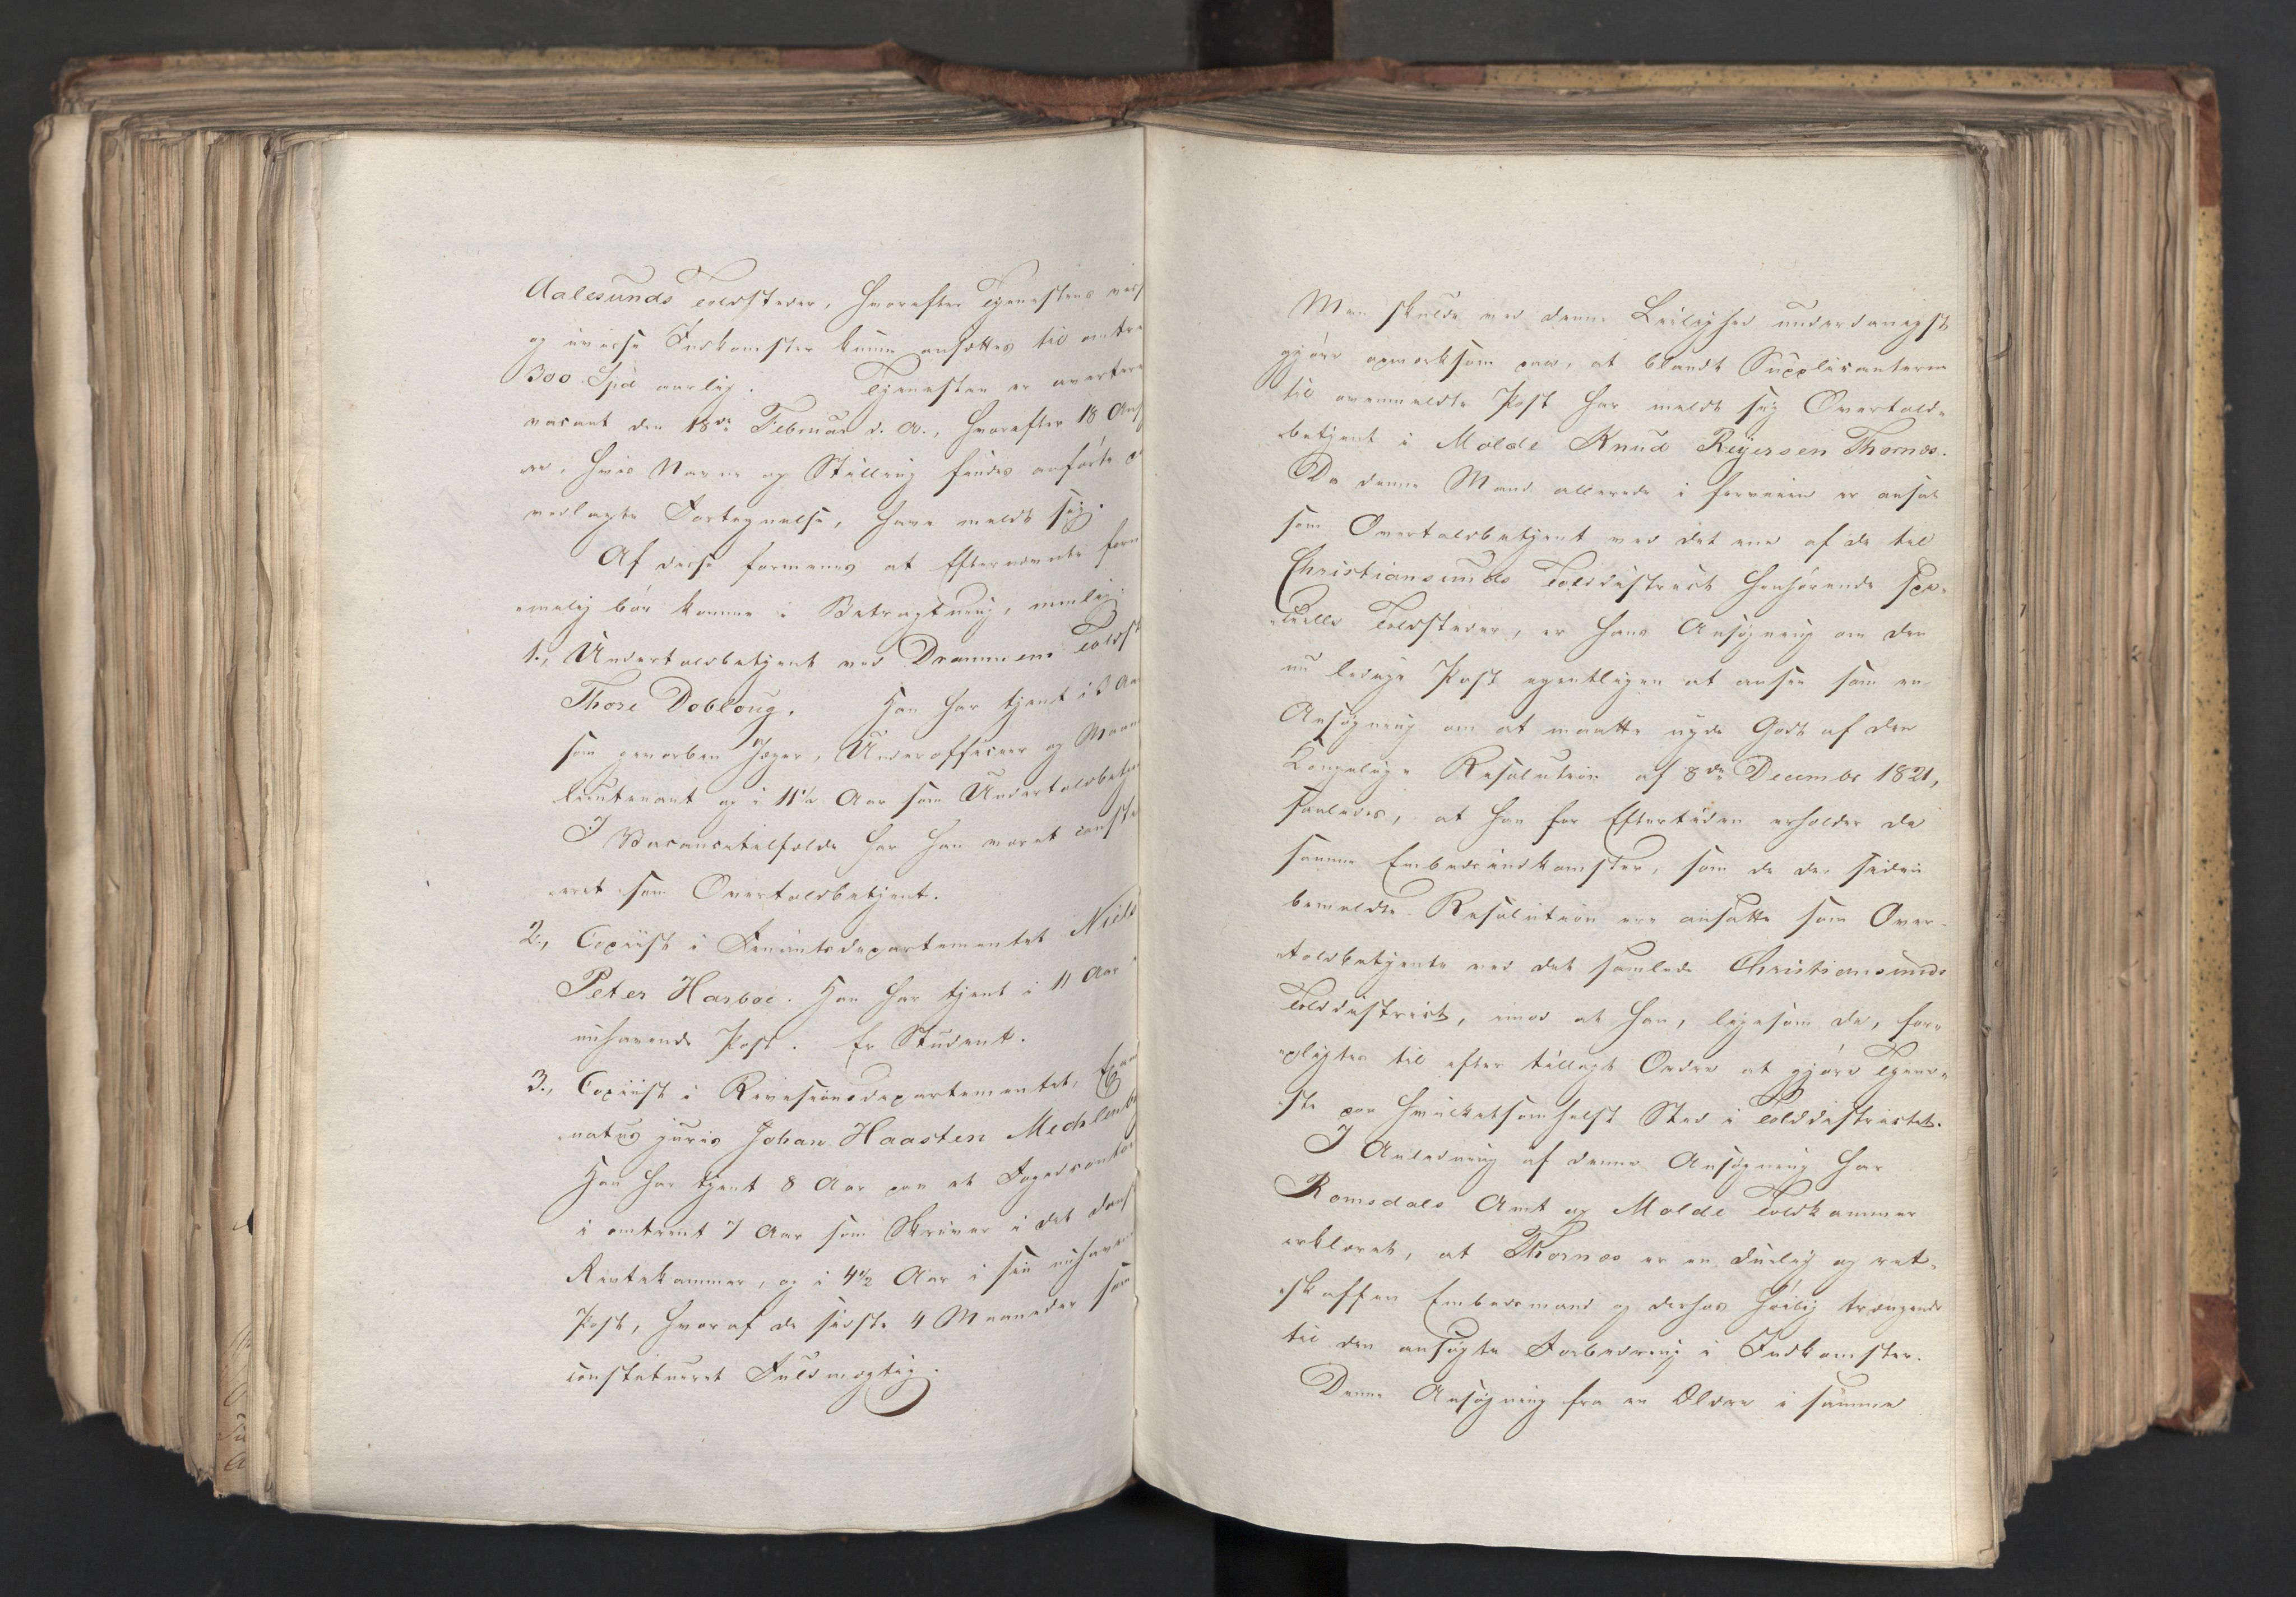 Aalesunds Toldsteder, hvorefter Tjenestens viss
og uvisse Indkomster kunne ansættes til omtre
300 Spd aarlig. Tjenesten er averteret
vacant den 18de Februar d. A., hvorefter 18 Ans
ere, hvis Navne og Stilling findes anførte i
vedlagte Fortegnelse, have meldt sig.
Af disse formenes at Efternævnte for
melig bør komme i Betragtning, nemlig:
1., Undertoldbetjent ved Drammens Toldst
Thore Dobloug. Han har tjent i 3 Aar
som geworben Jæger, Underofficeer og Maan
lieutenant og i 11½ Aar som Undertoldbetje
I Vacancetilfælde har han været const
eret som Overtoldbetjent.
2., Copiist i Finantsdepartementet Niels
Peter Harboe. Han har tjent i 11 Aar i
nuhavende Post. Er Student.
3., Copiist i Revisionsdepartementet, Exam
natus juris Johan Haasten Mechlenb
Han har tjent 8 Aar paa et Fogedcontoir
i omtrent 7 Aar som Skriver i det dansk
Rentekammer, og i 4½ Aar i sin nuhaven
Post, hvoraf de sidste 4 Maaneder som
constitueret Fuldmægtig.
Man skulde ved denne Leilighed underdanigst
gjøre opmærksom paa, at blandt Supplicanterne
til ovenmeldte Post har meldt sig Overtold-
betjent i Molde Knud Reyersen Thornæs.
Da denne Mand allerede i forveien er ansat
som Overtoldbetjent ved det ene af de til
Christiansunds Tolddistrict henhørende spe-
cielle Toldsteder, er hans Ansøgning om den
nu ledige Post egentligen at ansee som en
Ansøgning om at maatte nyde Godt af den
Kongelige Resolution af 8de Decembr 1821,
saaledes, at han for Eftertiden erholder de
samme Embedsindkomster, som de der siden
bemeldte Resolution ere ansatte som Over-
toldbetjente ved det samlede Christiansunds
Tolddistrict, imod at han, ligesom de, for-
pligtes til efter tillagt Ordre at gjøre Tjene-
ste paa hvilketsomhelst Sted i Tolddistrictet.
I Anledning af denne Ansøgning har
Romsdals Amt og Molde Toldkammer
erklæret, at Thornæs er en duelig og ret-
skaffen Embedsmand og derhos høilig trængende
til den ansøgte Forbedring i Indkomster.
Denne Ansøgning fra en Ældre i samme